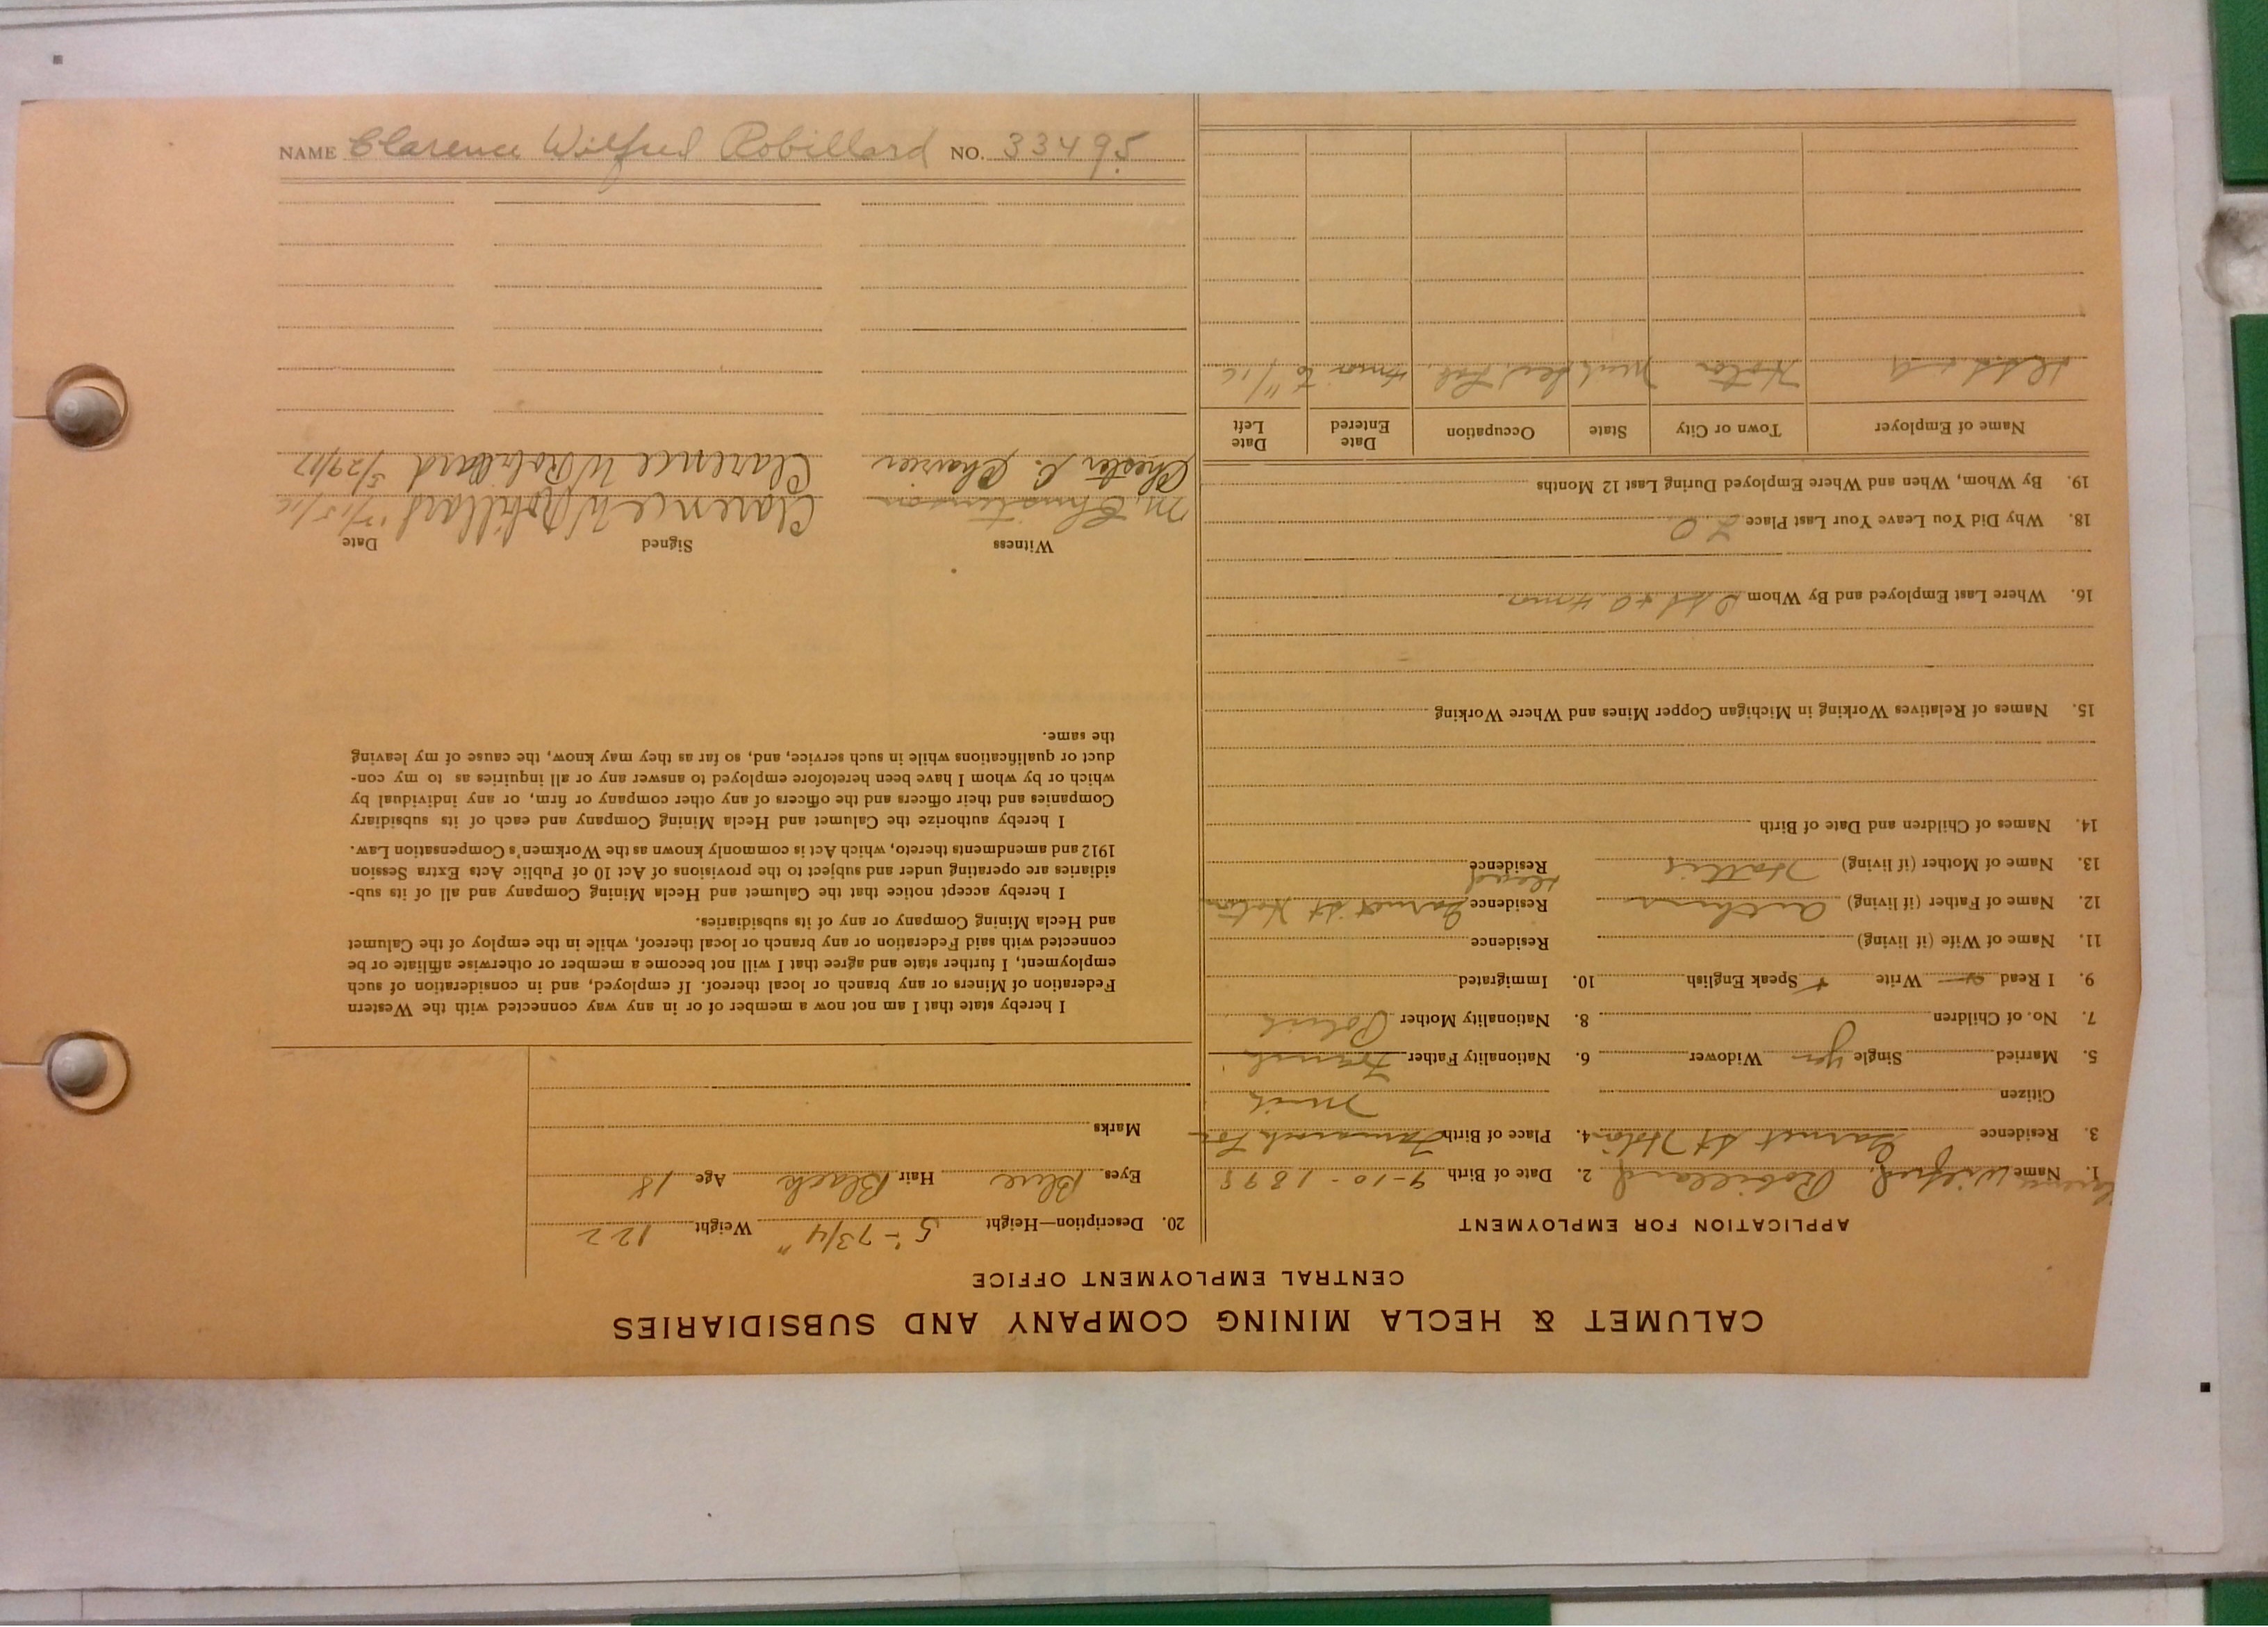 CALUMET & HECLA MINING COMPANY AND SUBSIDIARIES
CENTRAL EMPLOYMENT OFFICE
APPLICATION FOR EMPLOYMENT
1. Name Clarence Wilfred Robillard 2. Date of Birth 9-10-1898
3. Residence Garnet St 4. Place of Birth Tamarack
Citizen Mich
5. Married Single yes Widower 6. Nationality Father French
7. No. of Children 8. Nationality Mother Polish
9. I Read Write Speak English 10. Immigrated
11. Name of Wife (if living) Residence
12. Name of Father (if living) Arthur Residence Garnet St
13. Name of Mother (if living) Hattie Residence
14. Names of Children and Date of Birth
15. Names of Relatives Working in Michigan Copper Mines and Where Working
16. Where Last Employed and By Whom 4 mos
18. Why Did You Leave Your Last Place
19. By Whom, When and Where Employed During Last 12 Months
Name of Employer Town or City State Occupation Date Entered Date Left
Mich 4 mos to 11/16
20. Description—Height 5'-7 3/4" Weight 122
Eyes Blue Hair Black Age 18
Marks
I hereby state that I am not now a member of or in any way connected with the Western
Federation of Miners or any branch or local thereof. If employed, and in consideration of such
employment, I further state and agree that I will not become a member or otherwise affiliate or be
connected with said Federation or any branch or local thereof, while in the employ of the Calumet
and Hecla Mining Company or any of its subsidiaries.
I hereby accept notice that the Calumet and Hecla Mining Company and all of its sub-
sidiaries are operating under and subject to the provisions of Act 10 of Public Acts Extra Session
1912 and amendments thereto, which Act is commonly known as the Workmen's Compensation Law.
I hereby authorize the Calumet and Hecla Mining Company and each of its subsidiary
Companies and their officers and the officers of any other company or firm, or any individual by
which or by whom I have been heretofore employed to answer any or all inquiries as to my con-
duct or qualifications while in such service, and, so far as they may know, the cause of my leaving
the same.
Witness Signed Date
M. Christenson Clarence W Robillard 12/15/16
Chester C. Clarence W Robillard 5/29/17
NAME Clarence Wilfred Robillard NO. 33495